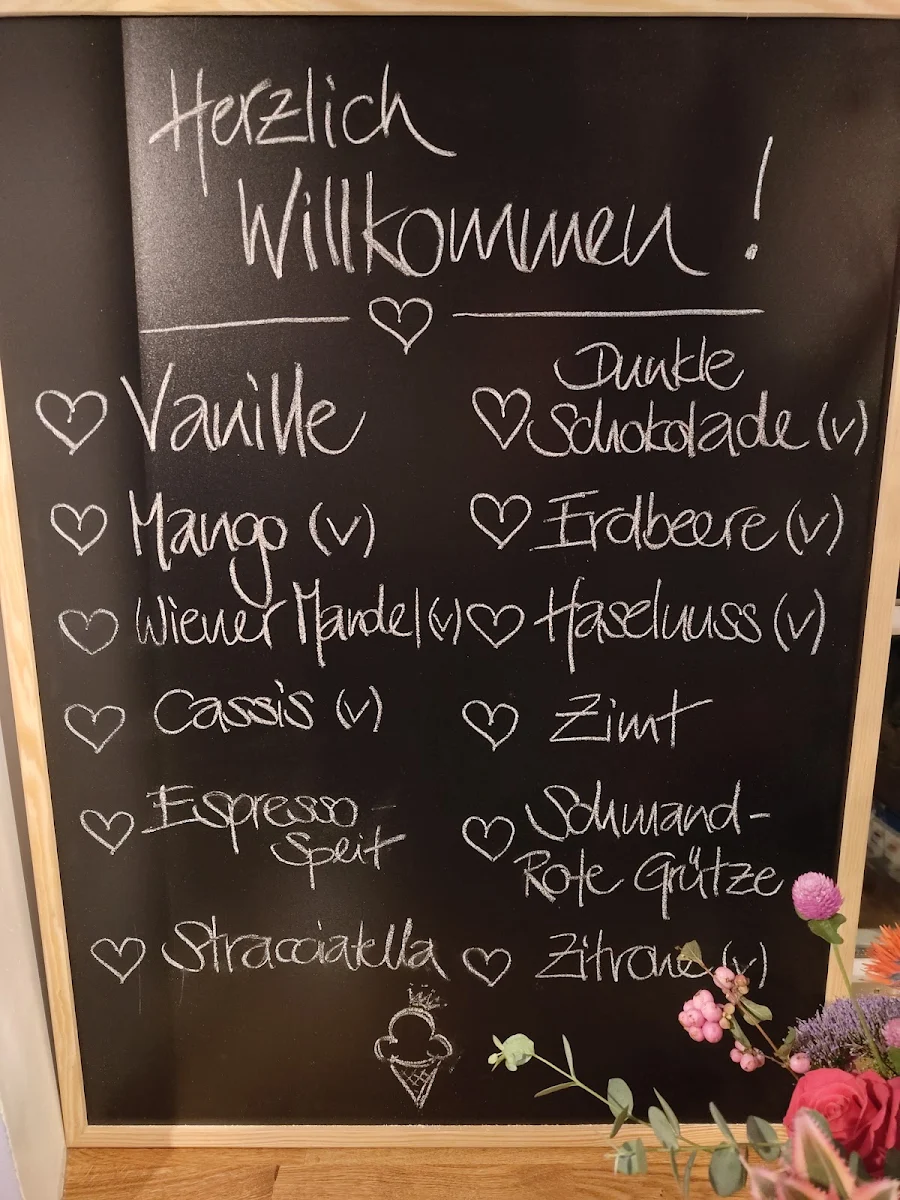 Herzlich
Willkommen !
Vanille
Mango (v)
Wiener Mandel (v)
Cassis (v)
Espresso-
Speit
Stracciatella
Dunkle
Schokolade (v)
Erdbeere (v)
Haselnuss (v)
Zimt
Schmand-
Rote Grütze
Zitrone (v)